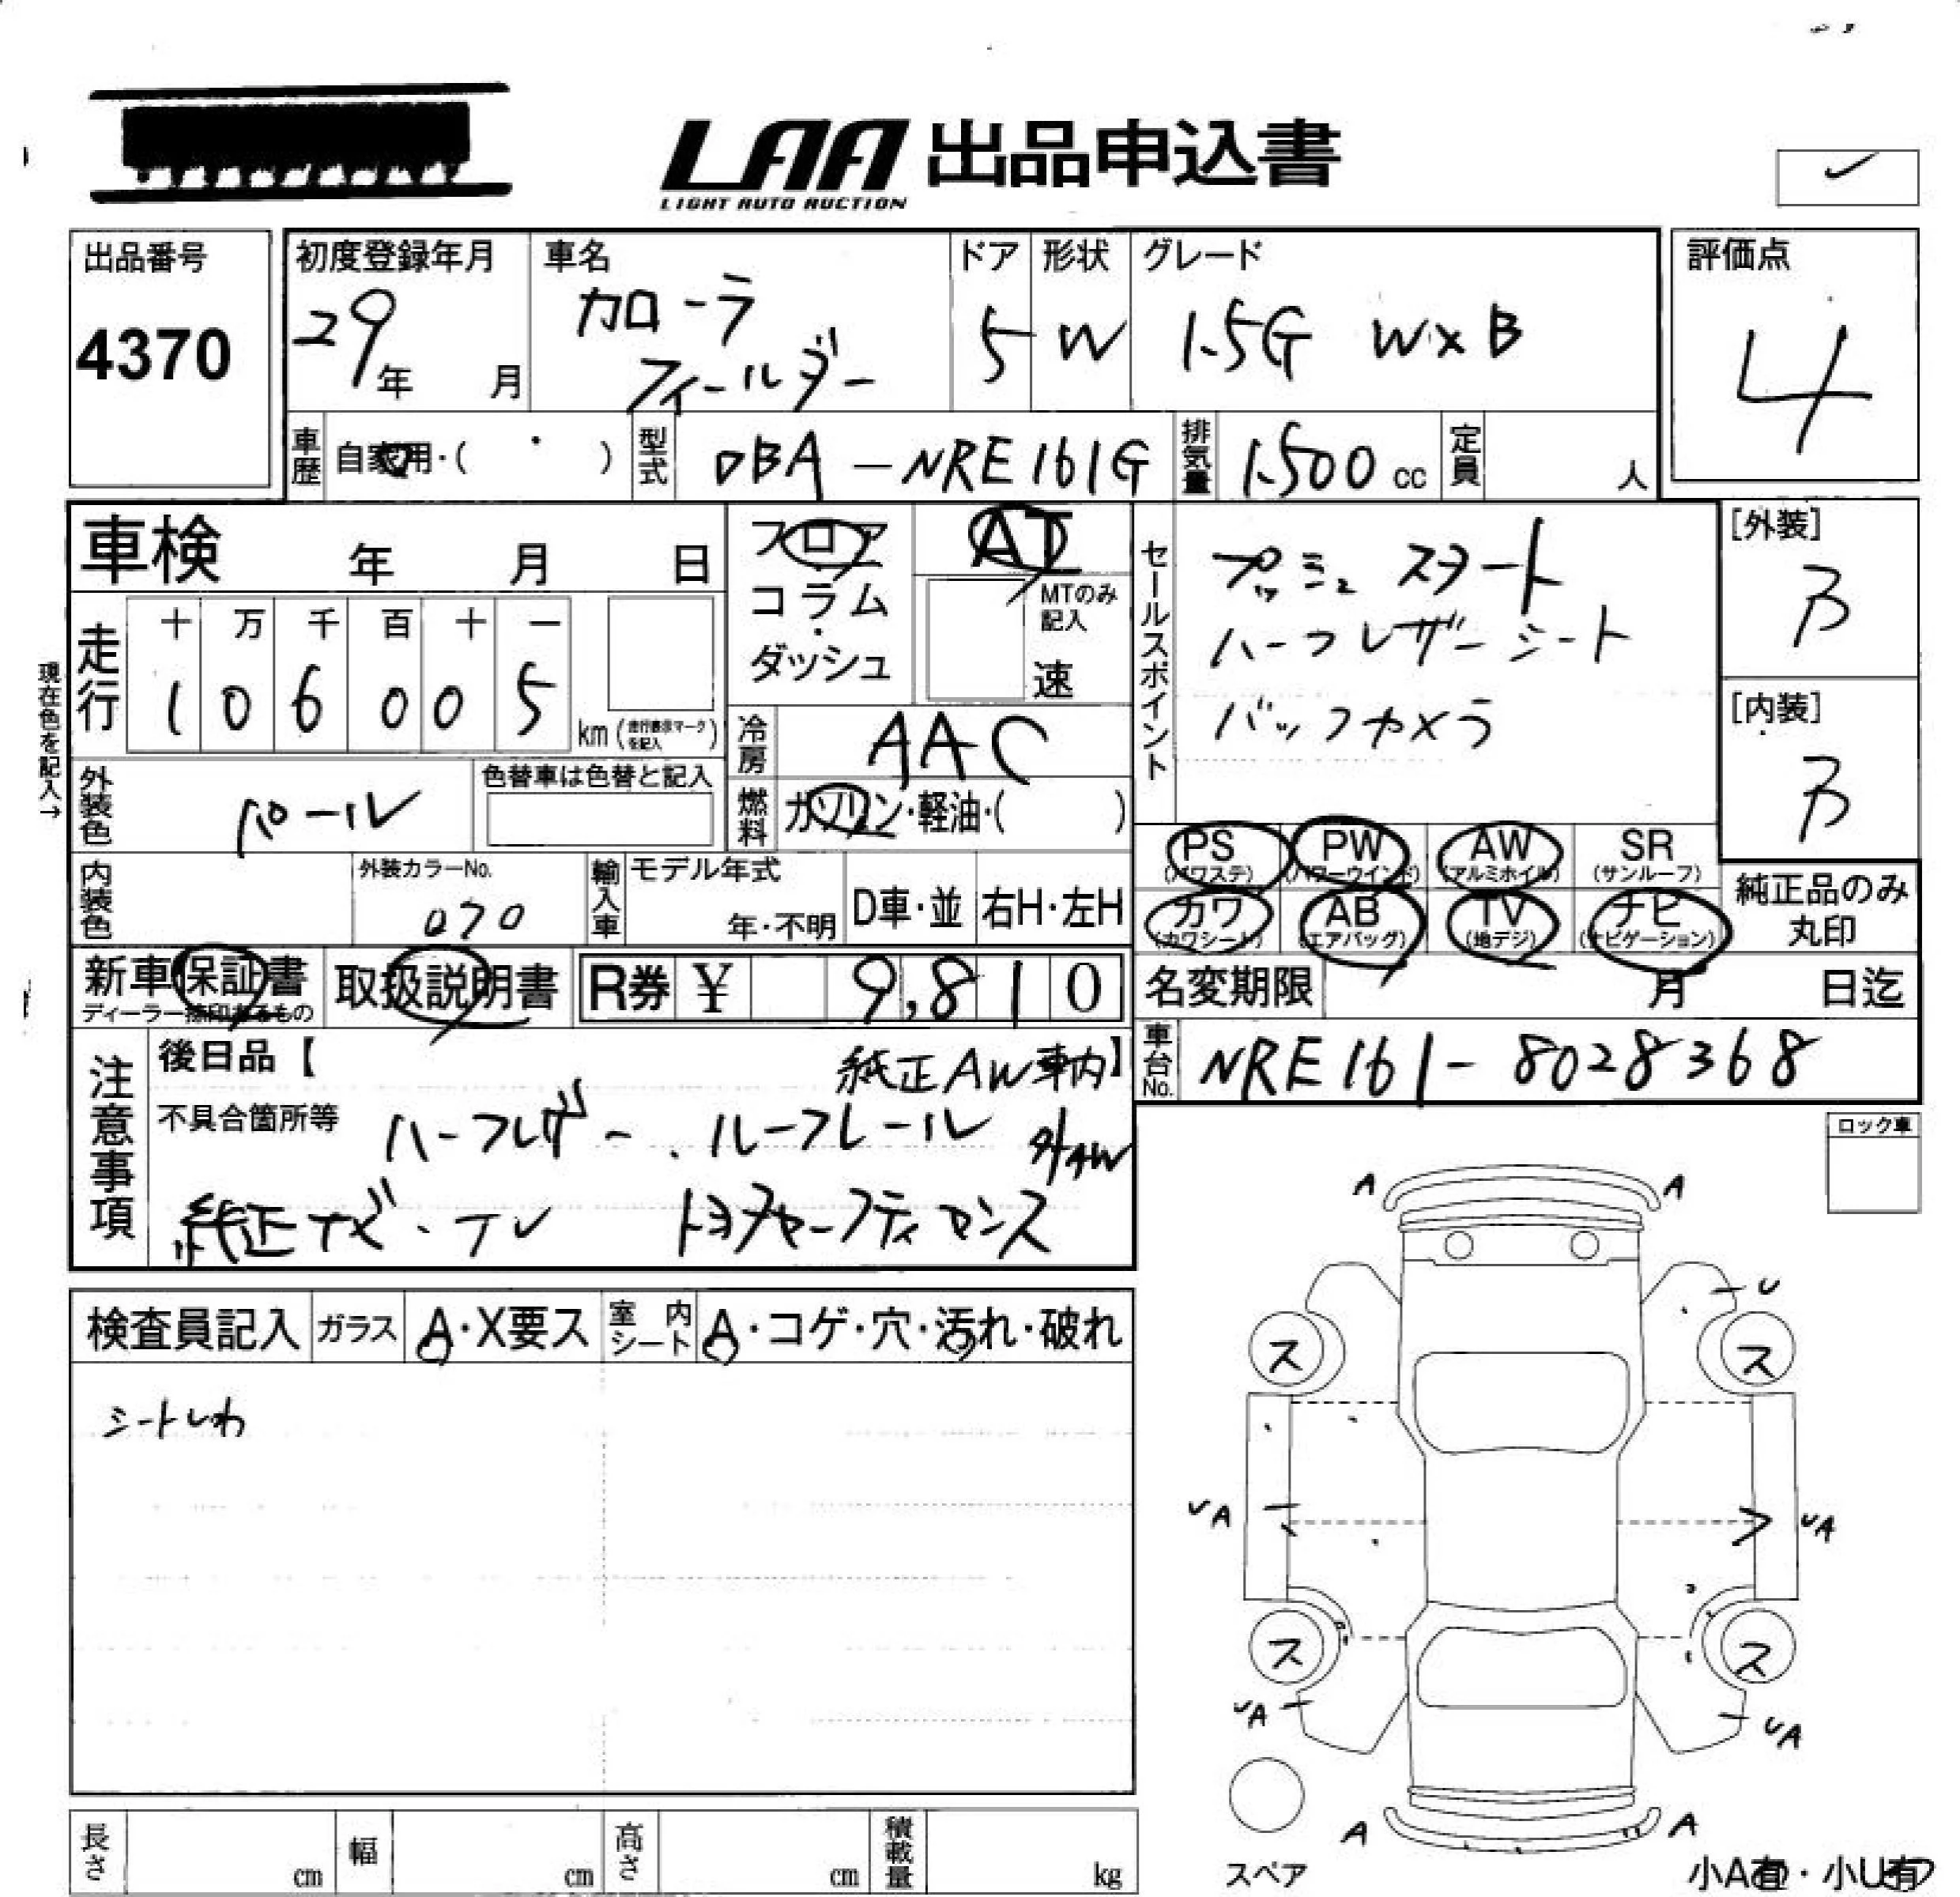 LAA 出品申込書
LIGHT AUTO AUCTION
出品番号
4370
初度登録年月
29年 月
車名
カローラ
フィールダー
ドア
5
形状
W
グレード
1.5G W×B
評価点
4
車歴 自家用・( ・ )
型式 DBA-NRE161G
排気量 1.500cc
定員 人
車検 年 月 日
現在色を記入→
走行
十 万 千 百 十 一
1 0 6 0 0 5
km(走行表示マークを記入)
フロア
コラム
・
ダッシュ
AT
MTのみ
記入
速
冷房 AAC
燃料 ガソリン・軽油・( )
セールスポイント
プッシュスタート
ハーフレザーシート
バックカメラ
[外装]
B
[内装]
B
外装色 パール
色替車は色替と記入
内装色
外装カラーNo.
070
輸入車
モデル年式
年・不明
D車・並
右H・左H
PS (パワステ)
PW (パワーウインド)
AW (アルミホイル)
SR (サンルーフ)
カワ (カワシート)
AB (エアバッグ)
TV (地デジ)
ナビ (ナビゲーション)
純正品のみ
丸印
新車保証書
ディーラー捺印あるもの
取扱説明書
R券 ¥ 9,810
名変期限 月 日迄
車台No. NRE161-8028368
注意事項
後日品【 純正AW車内】
不具合箇所等
ハーフレザー . ルーフレール 外AW
純正ナビ・TV トヨタセーフティセンス
ロック車
検査員記入
ガラス A・X要ス
室内シート A・コゲ・穴・汚れ・破れ
シートしわ
A A
U
ス ス
UA UA
ス ス
UA UA
A A
スペア
小A有・小U有
長さ cm
幅 cm
高さ cm
積載量 kg